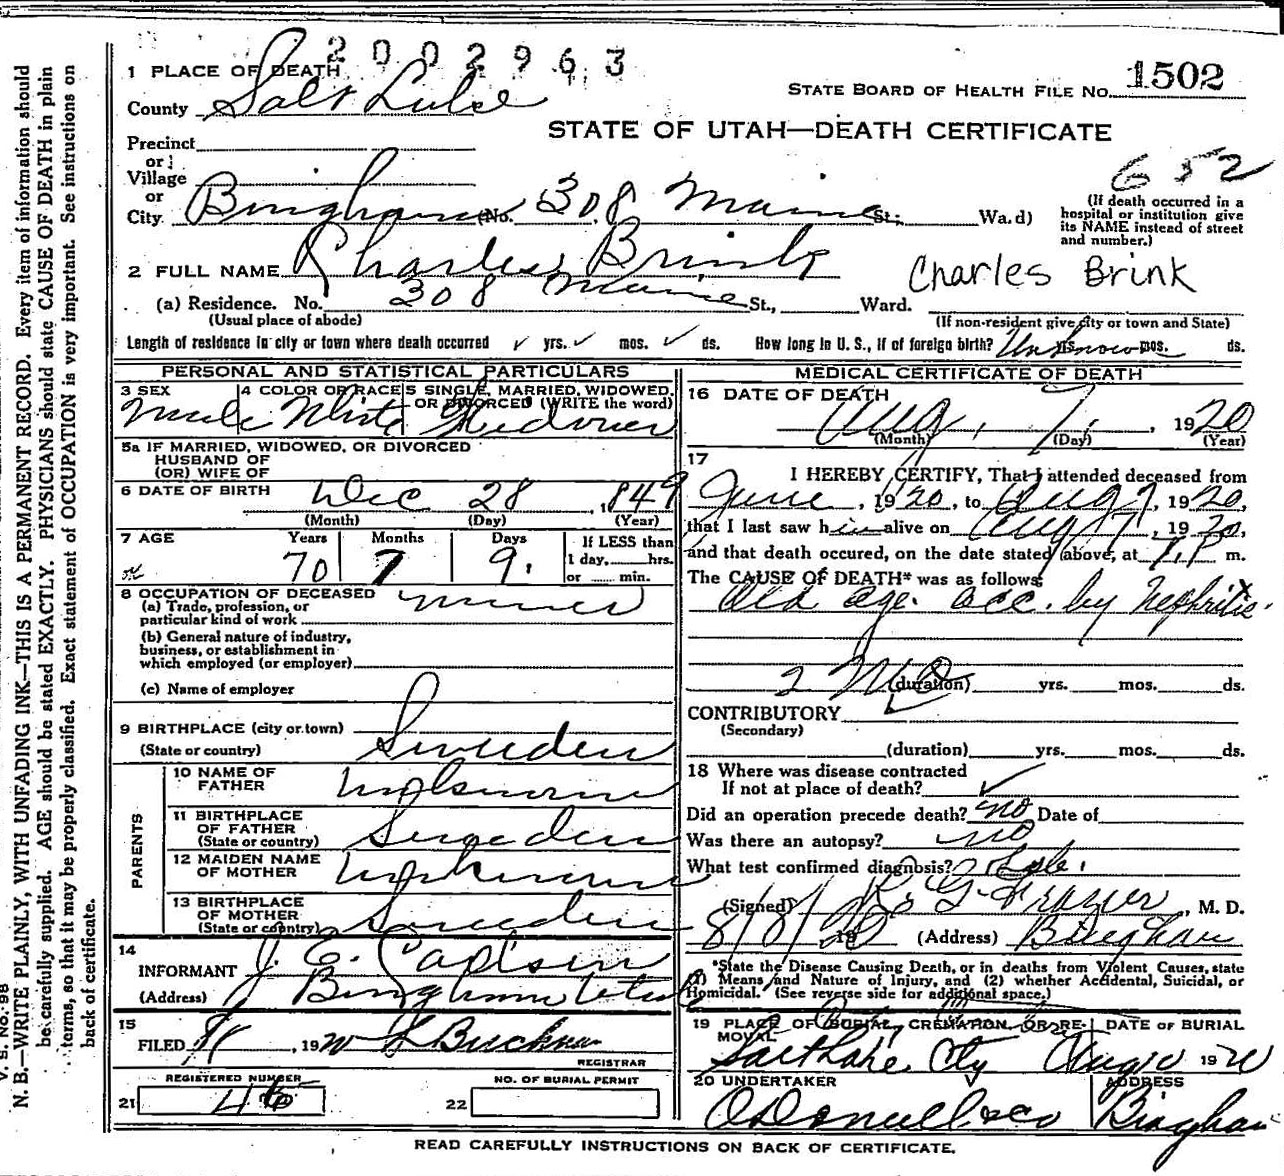 2002963
1 PLACE OF DEATH
County Salt Lake
STATE BOARD OF HEALTH FILE NO. 1502
STATE OF UTAH—DEATH CERTIFICATE
Precinct
or
Village
or
City. Bingham (No. 308 Main St.; Wa.d)
652
(If death occurred in a
hospital or institution give
its NAME instead of street
and number.)
2 FULL NAME Charles Brink
Charles Brink
(a) Residence. No. 308 Main St., Ward.
(Usual place of abode)
(If non-resident give city or town and State)
Length of residence in city or town where death occurred ✓ yrs. ✓ mos. ✓ ds. How long in U. S., if of foreign birth? Unknown yrs. mos. ds.
PERSONAL AND STATISTICAL PARTICULARS
3 SEX 4 COLOR OR RACE 5 SINGLE, MARRIED, WIDOWED,
OR DIVORCED (WRITE the word)
Male White Widower
5a IF MARRIED, WIDOWED, OR DIVORCED
HUSBAND OF
(OR) WIFE OF
6 DATE OF BIRTH Dec 28, 1849
(Month) (Day) (Year)
7 AGE Years Months Days If LESS than
1 day, hrs.
or min.
70 7 9
8 OCCUPATION OF DECEASED Miner
(a) Trade, profession, or
particular kind of work
(b) General nature of industry,
business, or establishment in
which employed (or employer)
(c) Name of employer
9 BIRTHPLACE (city or town)
(State or country) Sweden
PARENTS
10 NAME OF
FATHER Unknown
11 BIRTHPLACE
OF FATHER
(State or country) Sweden
12 MAIDEN NAME
OF MOTHER Unknown
13 BIRTHPLACE
OF MOTHER
(State or country) Sweden
14
INFORMANT J. E. Carlsen
(Address) Bingham Utah
15
FILED 8/ , 1920
REGISTRAR
REGISTERED NUMBER
21 46
NO. OF BURIAL PERMIT
22
MEDICAL CERTIFICATE OF DEATH
16 DATE OF DEATH
Aug, 7, 1920
(Month) (Day) (Year)
17
I HEREBY CERTIFY, That I attended deceased from
June, 1920, to Aug 7, 1920,
that I last saw him alive on Aug 7, 1920,
and that death occured, on the date stated above, at P. m.
The CAUSE OF DEATH* was as follows:
Old age. acc. by Nephritis.
2 Mo (duration) yrs. mos. ds.
CONTRIBUTORY
(Secondary)
(duration) yrs. mos. ds.
18 Where was disease contracted
If not at place of death? ✓
Did an operation precede death? no Date of
Was there an autopsy? no
What test confirmed diagnosis?
(Signed) R. G. Frazier, M. D.
8/8/20 19 (Address) Bingham
*State the Disease Causing Death, or in deaths from Violent Causes, state
(1) Means and Nature of Injury, and (2) whether Accidental, Suicidal, or
Homicidal. (See reverse side for additional space.)
19 PLACE OF BURIAL, CREMATION, OR RE-
MOVAL
DATE OF BURIAL
Salt Lake City Aug 10 1920
20 UNDERTAKER ADDRESS
O'Donnell & Co Bingham
READ CAREFULLY INSTRUCTIONS ON BACK OF CERTIFICATE.
V. S. No. 98
N. B.—WRITE PLAINLY, WITH UNFADING INK—THIS IS A PERMANENT RECORD. Every item of information should
be carefully supplied. AGE should be stated EXACTLY. PHYSICIANS should state CAUSE OF DEATH in plain
terms, so that it may be properly classified. Exact statement of OCCUPATION is very important. See instructions on
back of certificate.